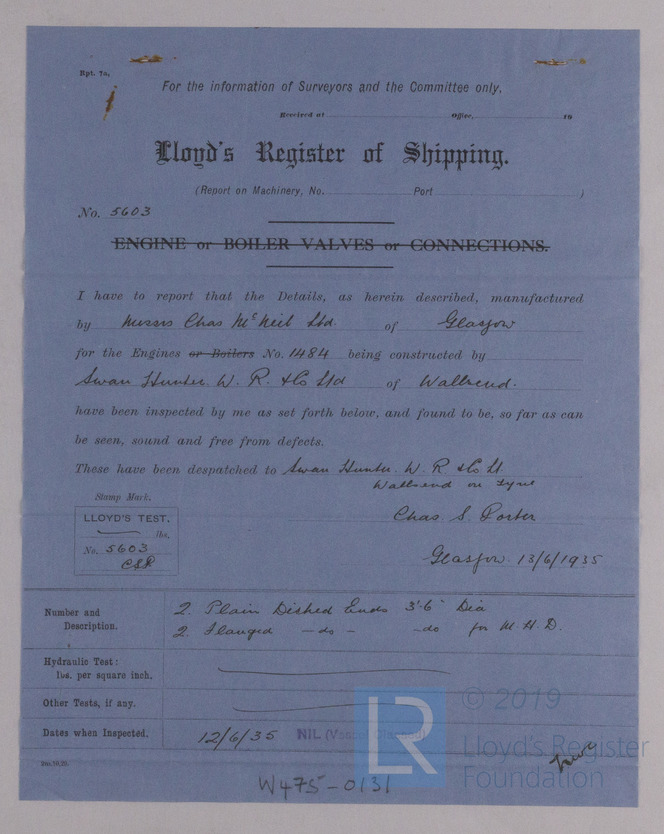 Rpt. 7a.
For the information of Surveyors and the Committee only.
Received at Office, 19
Lloyd's Register of Shipping.
(Report on Machinery, No. Port )
No. 5603
ENGINE or BOILER VALVES or CONNECTIONS.
I have to report that the Details, as herein described, manufactured
by Messrs Chas McNeil Ltd. of Glasgow
for the Engines or Boilers No. 1484 being constructed by
Swan Hunter W. R. & Co Ltd of Wallsend.
have been inspected by me as set forth below, and found to be, so far as can
be seen, sound and free from defects.
These have been despatched to Swan Hunter. W. R & Co Lt
Wallsend on Tyne
Stamp Mark.
Chas. S. Porter
LLOYD'S TEST.
lbs.
No. 5603
CSP
Glasgow 13/6/1935
Number and Description.
2. Plain Dished Ends 3'-6" Dia
2. Flanged - do - - do for M.H.D.
Hydraulic Test:
lbs. per square inch.
Other Tests, if any.
Dates when Inspected.
12/6/35 NIL
© 2019
LR
Lloyd's Register
Foundation
W475-0131